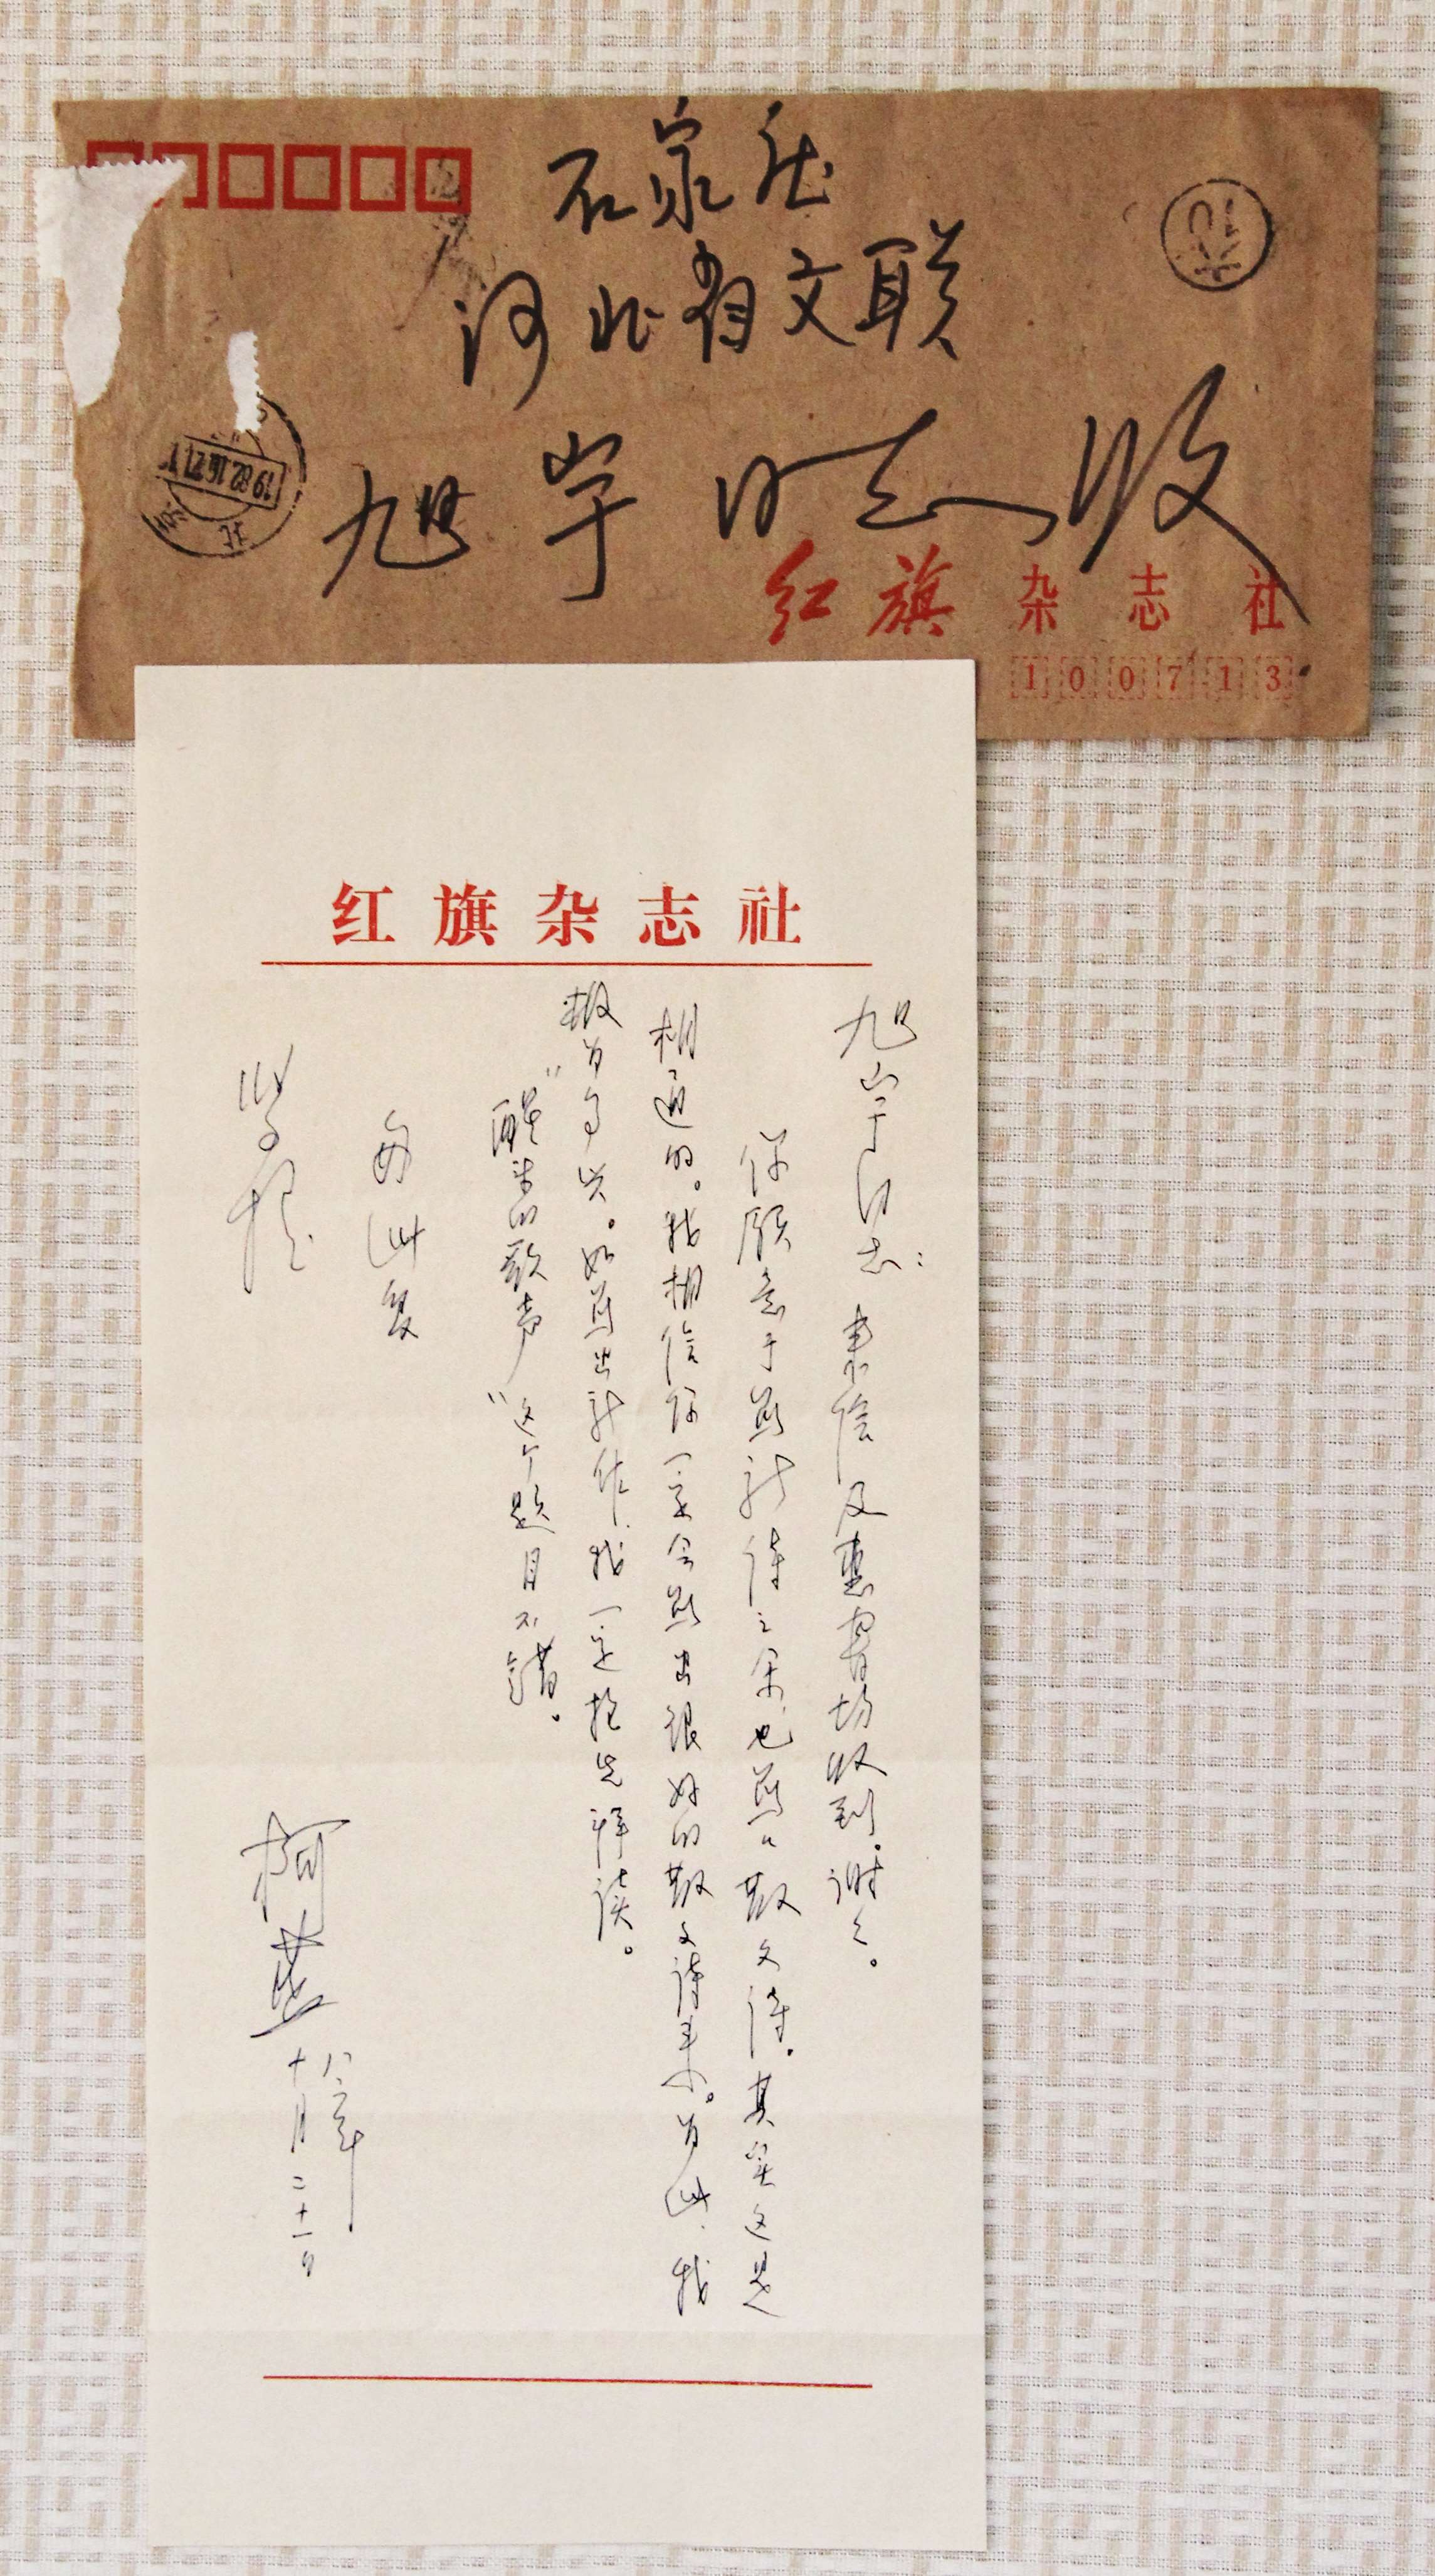 石家庄
河北省文联
旭宇同志收
红旗杂志社
100713
北
红旗杂志社
旭宇同志：来信及惠寄均收到。谢谢。
你愿意于写新诗之余也写写散文诗，其实这是
相通的。我相信你一定会写出很好的散文诗来。为此，我
极为高兴。如写出新作，我一定抢先拜读。
“醒来的歌声”这个题目不错。
匆此复
柯蓝
八二年
十月二十一日